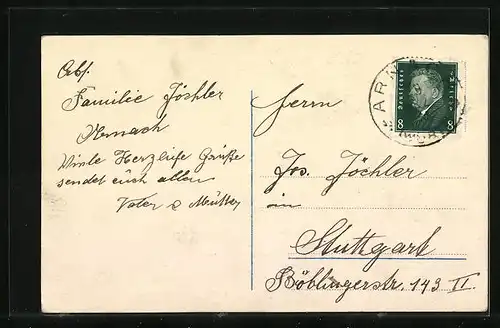 Abs.
Familie Jöchler
Viele Herzliche Grüße
sendet euch allen
Vater & Mutter
Herrn
Jos. Jöchler
in
Stuttgart
Böblingerstr. 143 II
Deutsches Reich
8 8